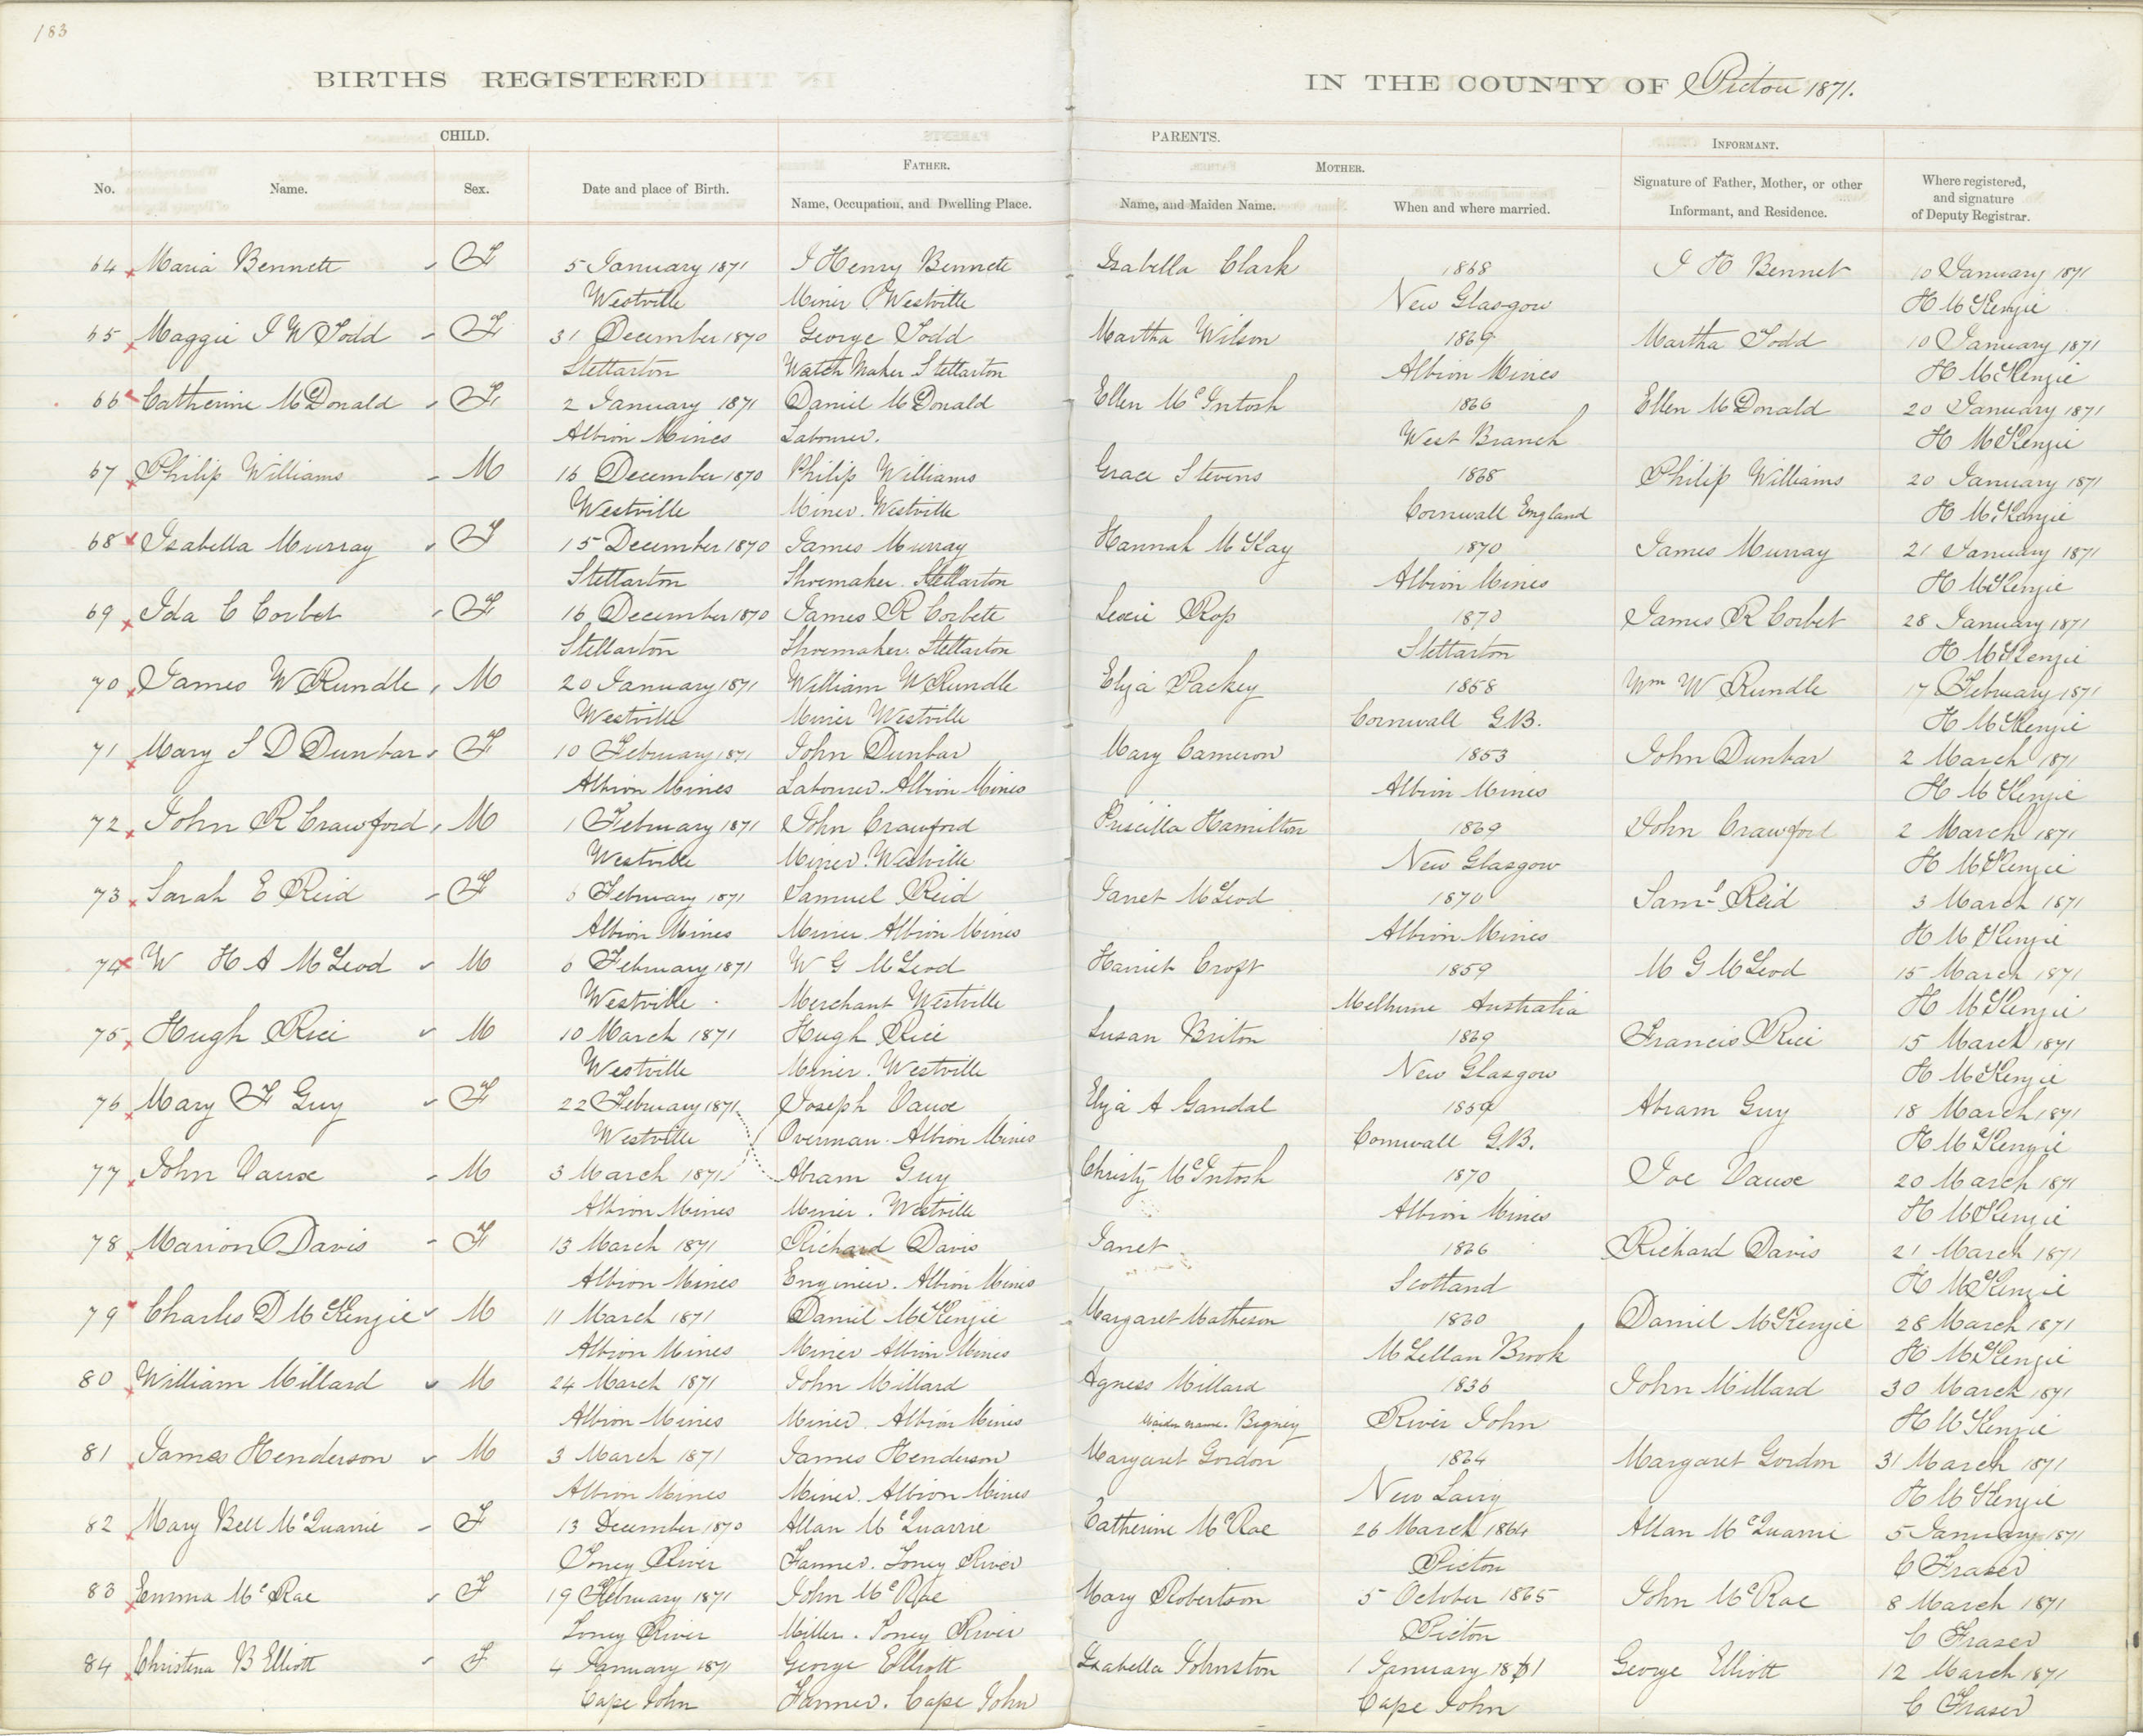 183
BIRTHS REGISTERED IN THE COUNTY OF Pictou 1871.
CHILD. PARENTS. INFORMANT.
FATHER. MOTHER.
No. Name. Sex. Date and place of Birth. Name, Occupation, and Dwelling Place. Name, and Maiden Name. When and where married. Signature of Father, Mother, or other Informant, and Residence. Where registered, and signature of Deputy Registrar.
64 Maria Bennett F 5 January 1871 J Henry Bennett Isabella Clark 1868 J H Bennet 10 January 1871
Westville Miner Westville New Glasgow H McKenzie
65 Maggie J W Todd F 31 December 1870 George Todd Martha Wilson 1869 Martha Todd 10 January 1871
Stellarton Watch Maker Stellarton Albion Mines H McKenzie
66 Catherine McDonald F 2 January 1871 Daniel McDonald Ellen McIntosh 1866 Ellen McDonald 20 January 1871
Albion Mines Labourer. West Branch H McKenzie
67 Philip Williams M 16 December 1870 Philip Williams Grace Stevens 1868 Philip Williams 20 January 1871
Westville Miner. Westville Cornwall England H McKenzie
68 Isabella Murray F 15 December 1870 James Murray Hannah McKay 1870 James Murray 21 January 1871
Stellarton Shoemaker. Stellarton Albion Mines H McKenzie
69 Ida C Corbet F 16 December 1870 James R Corbett Lexie Ross 1870 James R Corbet 28 January 1871
Stellarton Shoemaker. Stellarton Stellarton H McKenzie
70 James W Rundle M 20 January 1871 William W Rundle Eliza Packey 1858 Wm W Rundle 17 February 1871
Westville Miner Westville Cornwall G.B. H McKenzie
71 Mary S D Dunbar F 10 February 1871 John Dunbar Mary Cameron 1853 John Dunbar 2 March 1871
Albion Mines Labourer. Albion Mines Albion Mines H McKenzie
72 John R Crawford M 1 February 1871 John Crawford Priscilla Hamilton 1869 John Crawford 2 March 1871
Westville Miner. Westville New Glasgow H McKenzie
73 Sarah E Reid F 6 February 1871 Samuel Reid Janet McLeod 1870 Saml Reid 3 March 1871
Albion Mines Miner. Albion Mines Albion Mines H McKenzie
74 W H A McLeod M 6 February 1871 W G McLeod Harriet Croft 1859 M G McLeod 15 March 1871
Westville. Merchant Westville Melburne Australia H McKenzie
75 Hugh Rice M 10 March 1871 Hugh Rice Susan Briton 1869 Francis Rice 15 March 1871
Westville Miner. Westville New Glasgow H McKenzie
76 Mary F Guy F 22 February 1871 Joseph Vause Eliza A Gandal 1859 Abram Guy 18 March 1871
Westville Overman. Albion Mines Cornwall G.B. H McKenzie
77 John Vause M 3 March 1871 Abram Guy Christy McIntosh 1870 Joe Vause 20 March 1871
Albion Mines Miner. Westville Albion Mines H McKenzie
78 Marion Davis F 13 March 1871 Richard Davis Janet 1866 Richard Davis 21 March 1871
Albion Mines Engineer. Albion Mines Scotland H McKenzie
79 Charles D McKenzie M 11 March 1871 Daniel McKenzie Margaret Matheson 1860 Daniel McKenzie 28 March 1871
Albion Mines Miner Albion Mines McLellan Brook H McKenzie
80 William Millard M 24 March 1871 John Millard Agness Millard 1836 John Millard 30 March 1871
Albion Mines Miner. Albion Mines Maiden name. Bigney River John H McKenzie
81 James Henderson M 3 March 1871 James Henderson Margaret Gordon 1864 Margaret Gordon 31 March 1871
Albion Mines Miner. Albion Mines New Lairg H McKenzie
82 Mary Bell McQuarrie F 13 December 1870 Allan McQuarrie Catherine McRae 26 March 1864 Allan McQuarrie 5 January 1871
Toney River Farmer. Toney River Picton C Fraser
83 Emma McRae F 19 February 1871 John McRae Mary Robertson 5 October 1865 John McRae 8 March 1871
Toney River Miller. Toney River Picton C Fraser
84 Christena B Elliott F 4 January 1871 George Elliott Isabella Johnston 1 January 1861 George Elliott 12 March 1871
Cape John Farmer. Cape John Cape John C Fraser